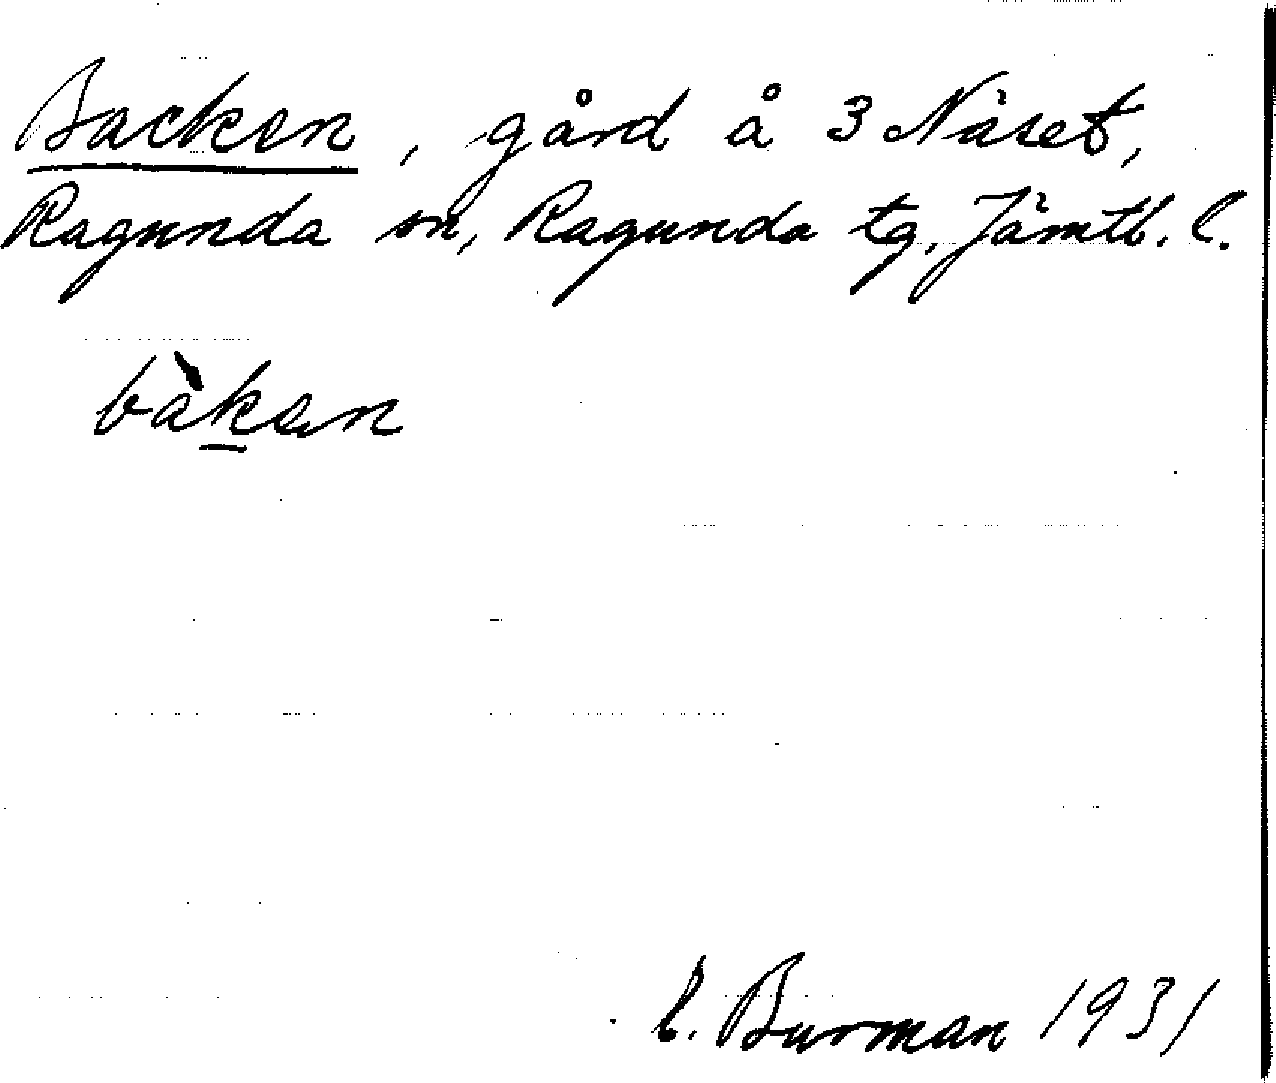 Backen, gård å 3 Näset,
Ragunda sn, Ragunda tg, Jämtl. l.
bàken
C. Burman 1931